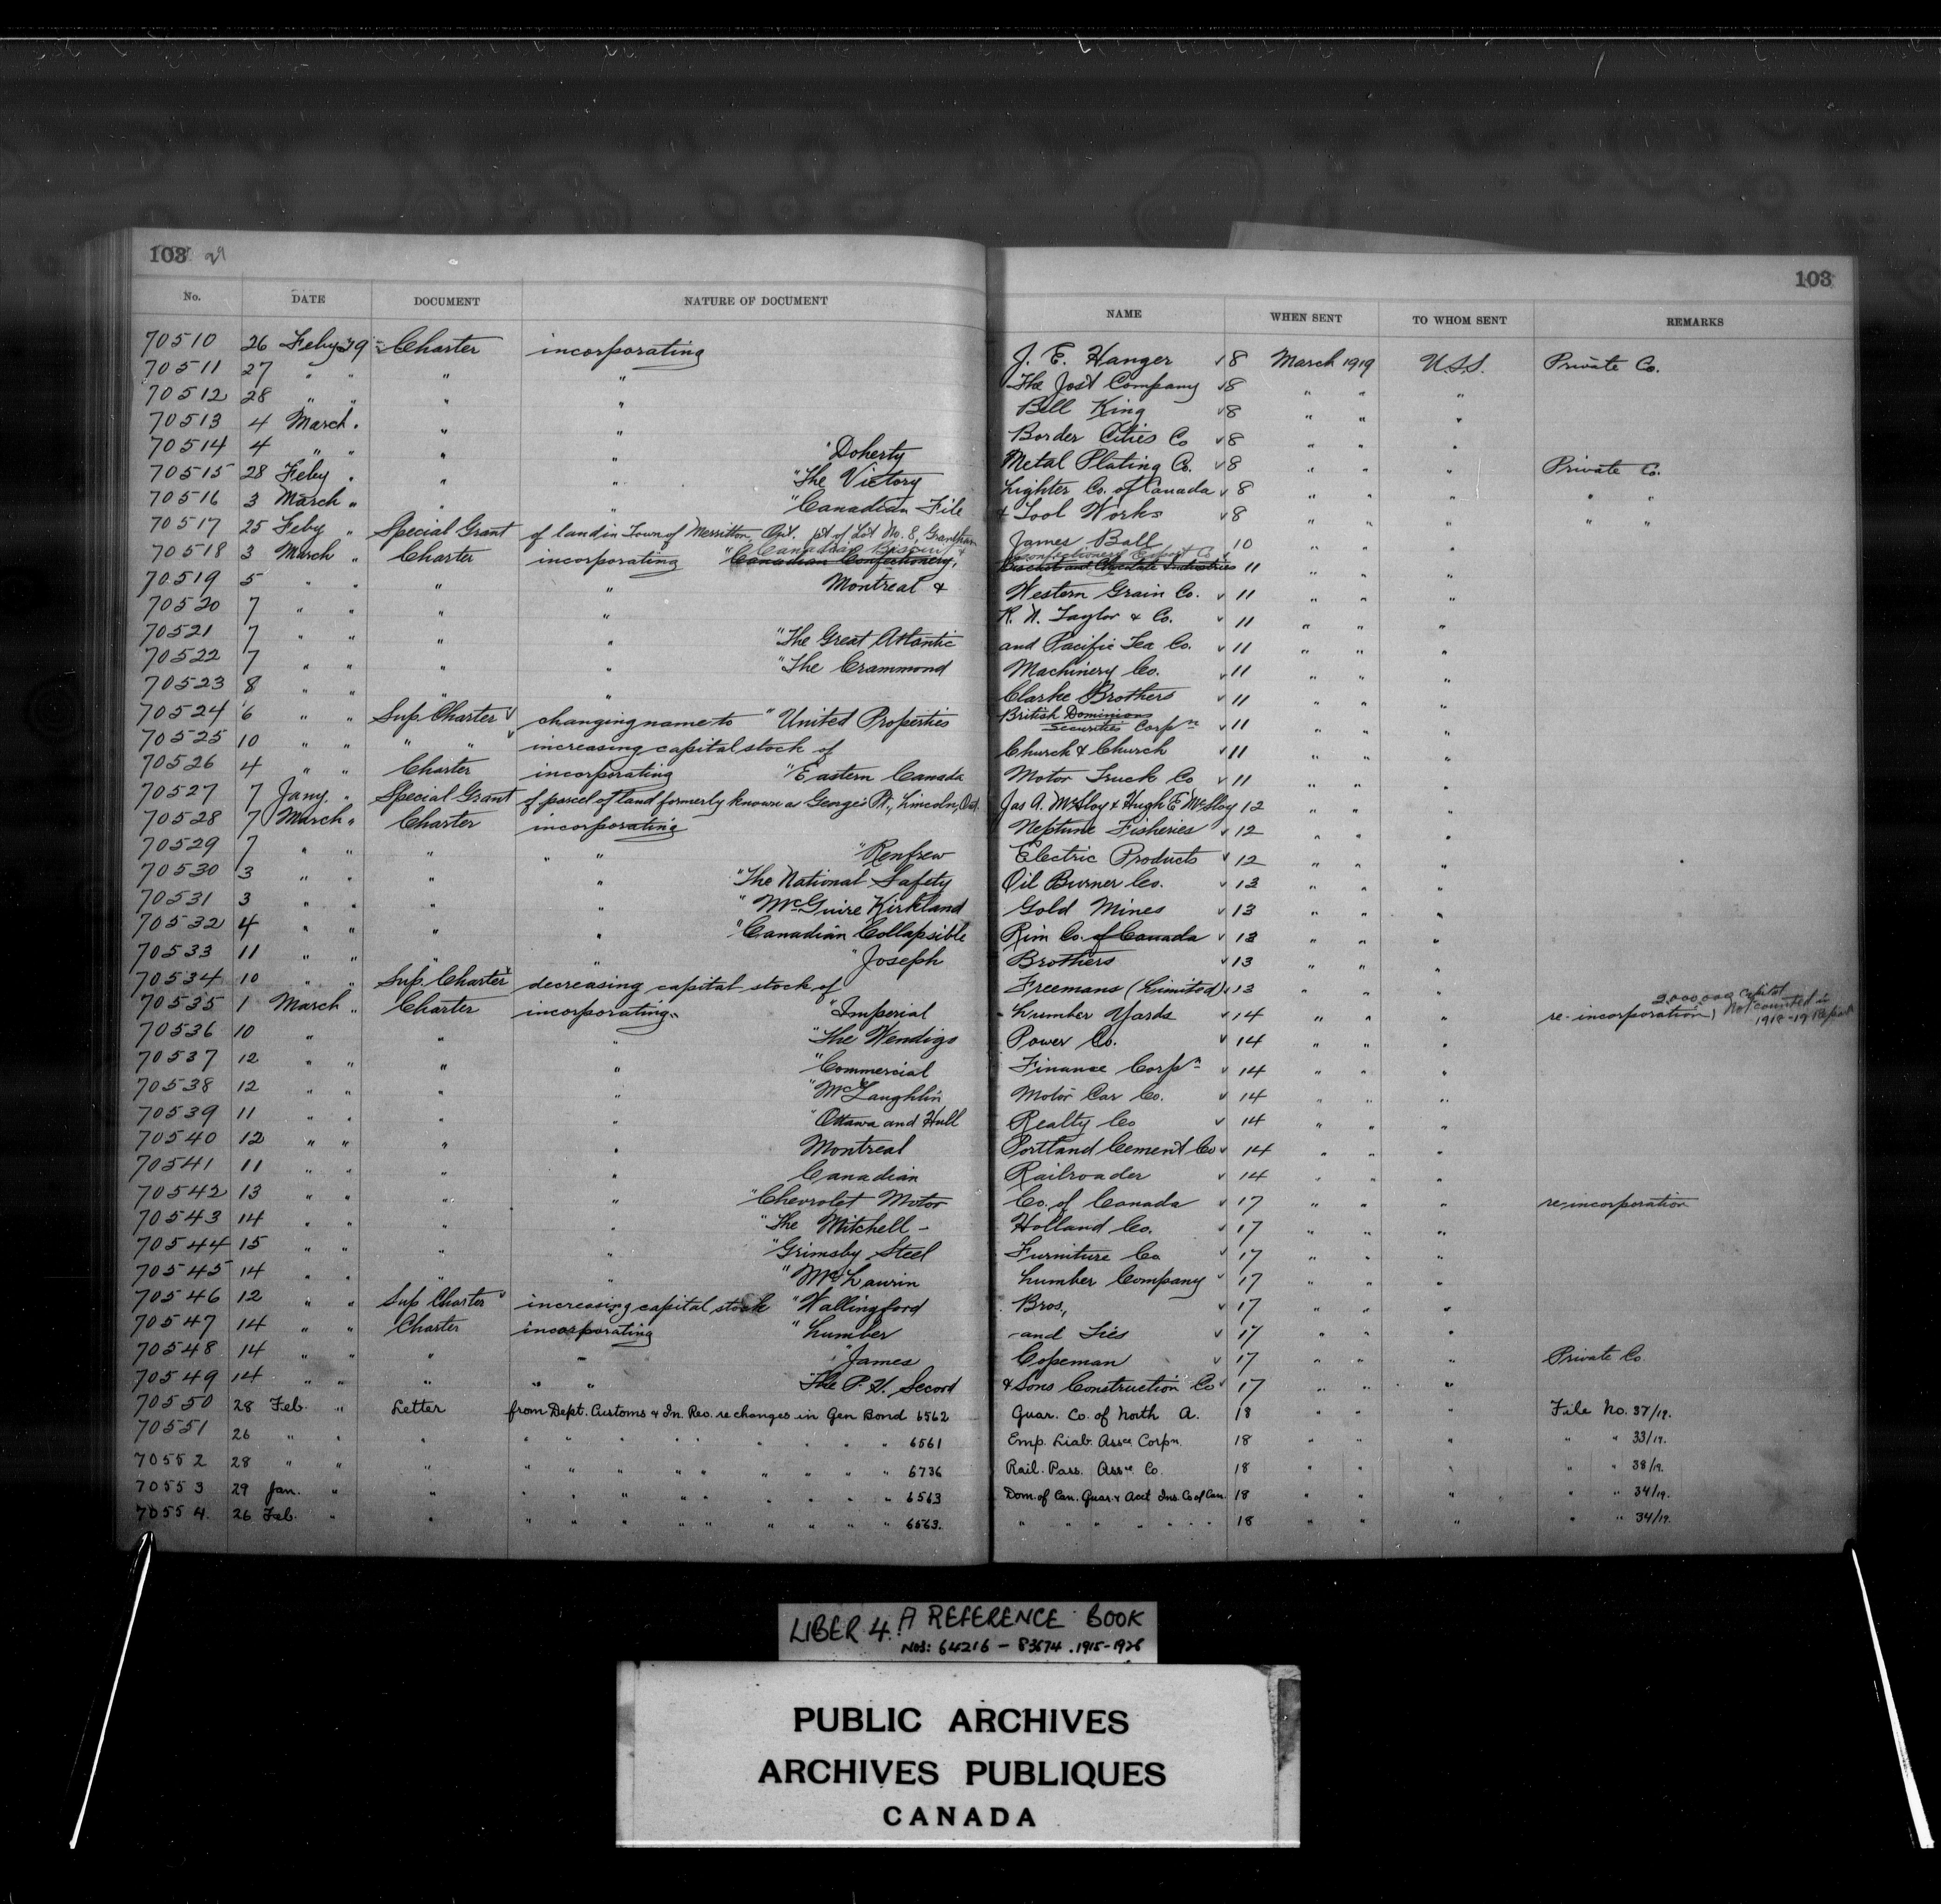 103 103
No. DATE DOCUMENT NATURE OF DOCUMENT NAME WHEN SENT TO WHOM SENT REMARKS
70510 26 Feby 19 Charter incorporating J. E. Hanger √ 8 March 1919 U.S.S. Private Co.
70511 27 " " " " The Jost Company √ 8 " " "
70512 28 " " " " Bell King √ 8 " " "
70513 4 March " " " Border Cities Co √ 8 " " "
70514 4 " " " " "Doherty Metal Plating Co. √ 8 " " " Private Co.
70515 28 Feby " " " "The Victory Lighter Co. of Canada √ 8 " " " " "
70516 3 March " " " "Canadian File & Tool Works √ 8 " " " " "
70517 25 Feby " Special Grant of land in Town of Merritton, Ont. pt of Lot No. 8, Grantham James Ball 10 " " "
70518 3 March " Charter incorporating "Canadian Confectionery, Canadian Biscuit & Biscuit and Chocolate Industries Confectionery Export Co √ 11 " " "
70519 5 " " " " Montreal & Western Grain Co. √ 11 " " "
70520 7 " " " " R. N. Taylor & Co. √ 11 " " "
70521 7 " " " " "The Great Atlantic and Pacific Tea Co. √ 11 " " "
70522 7 " " " " "The Crammond Machinery Co. √ 11 " " "
70523 8 " " " " Clarke Brothers √ 11 " " "
70524 6 " " Sup. Charter √ changing name to "United Properties British Dominions Securities Corpn √ 11 " " "
70525 10 " " " " √ increasing capital stock of Church & Church √ 11 " " "
70526 4 " " Charter incorporating "Eastern Canada Motor Truck Co √ 11 " " "
70527 7 Jany. " Special Grant of parcel of land formerly known as George's Pt., Lincoln, Ont. Jas A. McSloy & Hugh E McSloy 12 " " "
70528 7 March " Charter incorporating Neptune Fisheries √ 12 " " "
70529 7 " " " " " "Renfrew Electric Products √ 12 " " "
70530 3 " " " " "The National Safety Oil Burner Co. √ 13 " " "
70531 3 " " " " "McGuire Kirkland Gold Mines √ 13 " " "
70532 4 " " " " "Canadian Collapsible Rim Co. of Canada √ 13 " " "
70533 11 " " " " "Joseph Brothers √ 13 " " "
70534 10 " " Sup. Charter √ decreasing capital stock of Freemans (Limited) √ 13 " " "
70535 1 March " Charter incorporating " "Imperial Lumber Yards √ 14 " " " re-incorporation, 2,000,000 capital Not counted in 1918-19 Report
70536 10 " " " "The Wendigo Power Co. √ 14 " " "
70537 12 " " " " "Commercial Finance Corpn √ 14 " " "
70538 12 " " " " "McLaughlin Motor Car Co. √ 14 " " "
70539 11 " " " " "Ottawa and Hull Realty Co √ 14 " " "
70540 12 " " " " Montreal Portland Cement Co √ 14 " " "
70541 11 " " " " Canadian Railroader √ 14 " " "
70542 13 " " " " "Chevrolet Motor Co. of Canada √ 17 " " " re-incorporation
70543 14 " " " " "The Mitchell - Holland Co. √ 17 " " "
70544 15 " " " " "Grimsby Steel Furniture Co √ 17 " " "
70545 14 " " " " "McLaurin Lumber Company √ 17 " " "
70546 12 " " Sup Charter √ increasing capital stock "Wallingford Bros., √ 17 " " "
70547 14 " " Charter incorporating "Lumber and Ties √ 17 " " "
70548 14 " " " " "James Copeman √ 17 " " " Private Co
70549 14 " " " " " "The P. H. Secord & Sons Construction Co √ 17 " " "
70550 28 Feb. " Letter from Dept. Customs & In. Rev. re changes in Gen Bond 6562 Guar. Co. of North A. 18 " " " File No. 37/19.
70551 26 " " " " " " " " " " " " 6561 Emp. Liab. Assce Corpn. 18 " " " " " 33/19.
70552 28 " " " " " " " " " " " " 6736 Rail. Pass. Assce Co. 18 " " " " " 38/19.
70553 29 Jan. " " " " " " " " " " " 6563 Dom. of Can. Guar. & Acct Ins. Co of Can. 18 " " " " " 34/19.
70554. 26 Feb. " " " " " " " " " " " 6563. " " " " " " " 18 " " " " " 34/19.
LIBER 4. A REFERENCE BOOK
NOS: 64216 - 83674. 1915-1926
PUBLIC ARCHIVES
ARCHIVES PUBLIQUES
CANADA